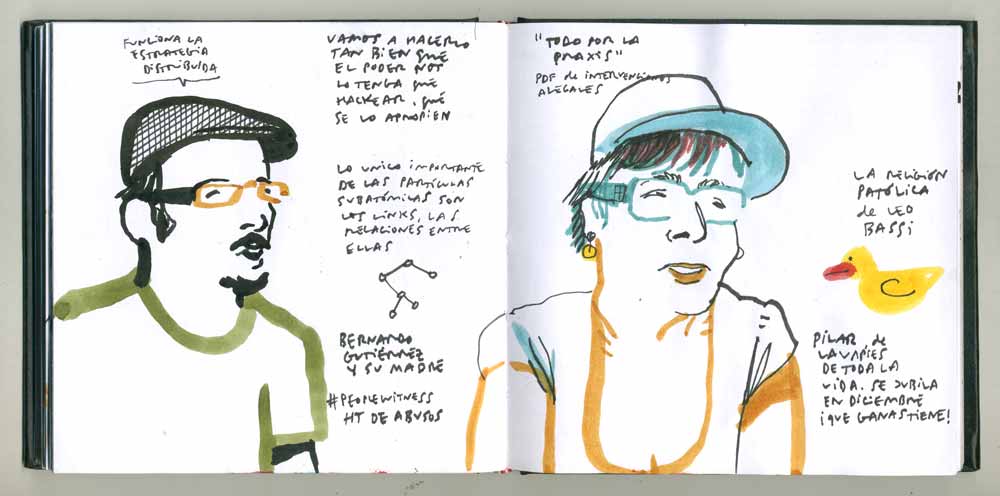 FUNCIONA LA
ESTRATEGIA
DISTRIBUIDA
VAMOS A HACERLO
TAN BIEN QUE
EL PODER NOS
LO TENGA QUE
HACKEAR, QUE
SE LO APROPIEN
LO UNICO IMPORTANTE
DE LAS PARTÍCULAS
SUBATÓMICAS SON
LOS LINKS, LAS
RELACIONES ENTRE
ELLAS
BERNARDO
GUTIÉRREZ
Y SU MADRE
#PEOPLEWITNESS
HT DE ABUSOS
"TODO POR LA
PRAXIS"
PDF de INTERVENCIONES
ALEGALES
LA RELIGIÓN
PATÓLICA
de LEO
BASSI
PILAR, de
LAVAPIÉS
DE TODA LA
VIDA. SE JUBILA
EN DICIEMBRE
¡QUE GANAS TIENE!